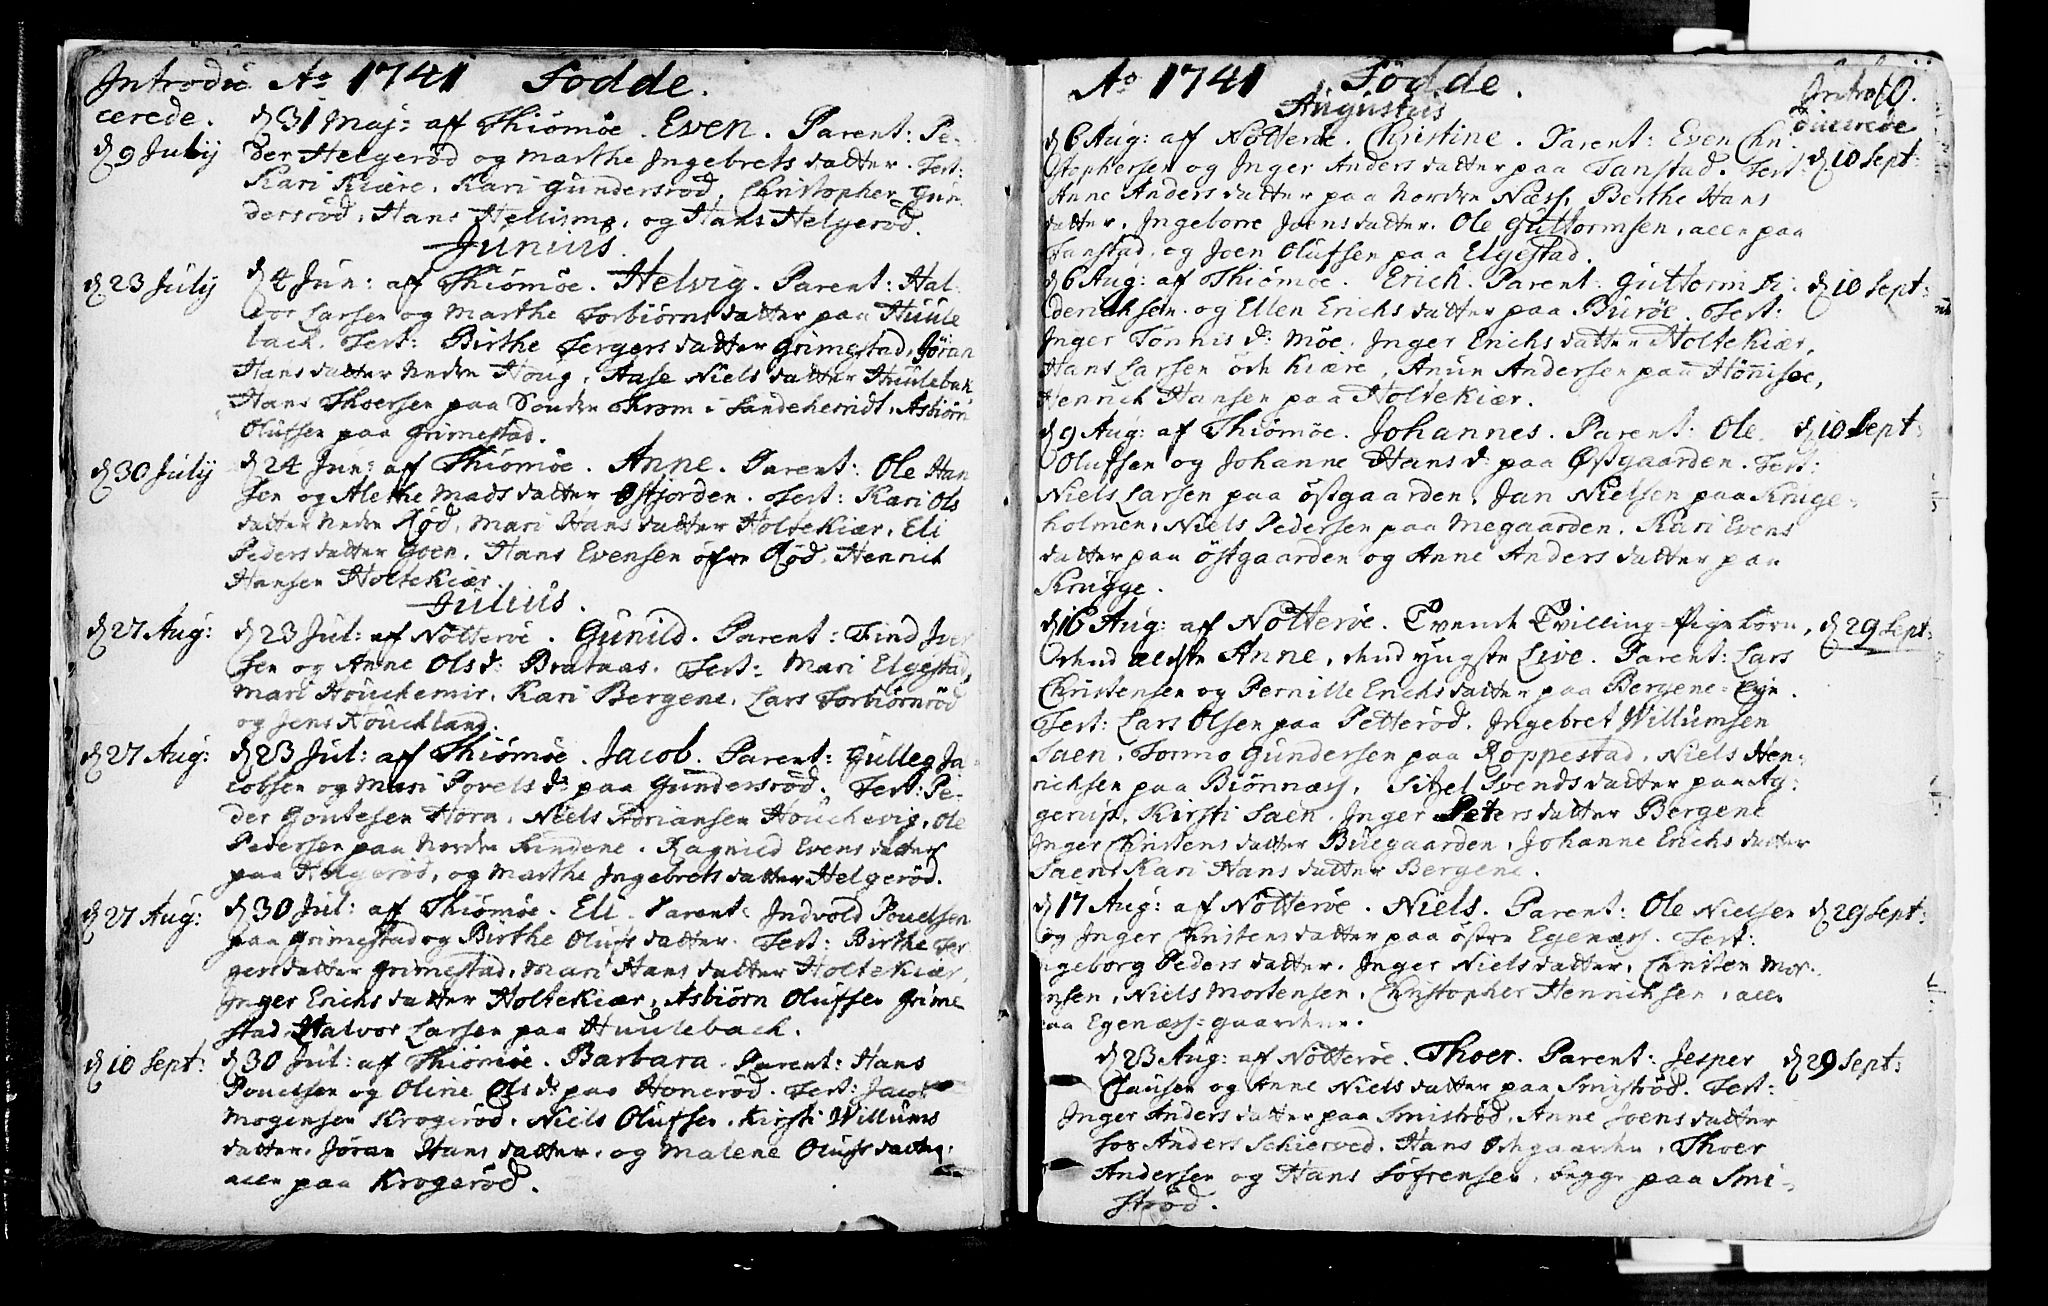 Introdu Ao 1741 Födde.
cerede.
d 31 Maj: aff Thiömöe. Even. Parent: Pe-
d 9 Julij
der Helgeröd og Marthe Ingebrets datter. Test:
Kari Kiære, Kari Gundersröd, Christopher Gun
dersröd, Hans Hellismo, og Hans Helgeröd.
Junius.
d 23 Julij
d 4 Jun: aff Thiömöe. Helvig. Parent: Hal-
vor Larsen og Marthe Torbiörns datter paa Huule
bach. Test: Birthe Tergers datter Grimestad, Jöran
Hans datter Nedre Houg, Aase Niels datter Huulebak
Hans Thoersen paa Söndre From i Sandeherridt, Asbiörn
Olufsen paa Grimestad.
d 30 Julij
d 24 Jun: aff Thiömöe. Anne. Parent: Ole Han
sen og Alethe Mads datter Östjorden. Test: Kari Ols
datter Nedre Röd, Mari Hans datter Holtekiær, Eli
Peders datter Goen, Hans Evensen öfre Röd, Henrich
Hansen Holtekiær.
Julius.
d 27 Aug:
d 23 Jul: aff Nötteröe. Gunild. Parent: Find Iver
sen og Anne Ols d: Bratnas. Test: Mari Elgestad,
Mari Houchemir, Kari Bergene, Lars Torbiörnröd
og Jens Houchland.
d 27 Aug:
d 23 Jul: af Thiömöe. Jacob. Parent: Gulleg Ja-
cobsen og Mari Povels d: paa Gundersröd. Test: Pe-
der Gontesen Hora, Niels Adriansen Houchevig, Ole
Pedersen paa Nordre Findene. Ragnild Evens datter
paa Helgeröd, og Marthe Ingebrets datter Helgeröd.
d 27 Aug:
d 30 Jul: aff Thiömöe. Eli. Parent: Indvold Pouelsen
paa Grimestad og Birthe Olufs datter. Test: Birthe Ter
gers datter Grimestad, Mari Hans datter Holtekiær,
Inger Erichs datter Holtekiær, Asbiörn Olufsen Grime
stad Halvor Larsen paa Huulebach.
d 10 Sept:
d 30 Jul: af Thiömöe. Barbara. Parent: Hans
Pouelsen og Oline Ols d: paa Honeröd. Test: Jacob
Mogensen Krogeröd, Niels Olufsen, Kirsti Willums
datter, Jöran Hans datter, og Malene Olufs datter,
alle paa Krogeröd.
Ao 1741 Födde.
Intro 10.
Augustus
ducerede
d 6 Aug: af Nötteröe. Christine. Parent: Even Chri
stophersen og Inger Anders datter paa Tanstad. Test: d 10 Sept:
Anne Anders datter paa Nordre Næss, Berthe Hans
datter, Ingeborre Joens datter, Ole Guttormsen, alle paa
Tanstad, og Joen Olufsen paa Elgestad.
d 6 Aug: af Thiömöe. Erich. Parent: Guttorm Fri- d 10 Sept:
derichsen og Ellen Erichs datter paa Buröe. Test:
Inger Tönnis d: Möe, Inger Erichs datter Holtekiær,
Hans Larsen öde Kiære, Anun Andersen paa Hönisöe,
Henrich Hansen paa Holtekiær.
d 9 Aug: af Thiömöe. Johannes. Parent: Ole d 10 Sept:
Olufsen og Johanne Hans d: paa Östgaarden. Test:
Niels Larsen paa östgaarden, Jan Nielsen paa Kruge-
holmen, Niels Pedersen paa Megaarden, Kari Evens
datter paa östgaarden og Anne Anders datter paa
Krugge.
d 16 Aug: af Nötteröe. Tvende Tvilling-Pigebörn, d 29 Sept:
dend ældste Anne, dend yngste Live. Parent: Lars
Christensen og Pernille Erichs datter paa Bergene-Eje.
Test: Lars Olsen paa Petteröd. Ingebret Willumsen
Saen, Tormo Gundersen paa Roppestad, Niels Hen-
richsen paa Biönnæss, Sitzel Svends datter paa Ag-
gerup, Kirsti Saen, Inger Peters datter Bergene
Inger Christens datter Buegaarden, Johanne Erichs datter
Saen, Kari Hans datter Bergene.
d 17 Aug: af Nötteröe. Niels. Parent: Ole Nielsen d 29 Sept:
og Inger Christens datter paa östre Egenæss. Test:
ngeborg Peders datter, Inger Niels datter, Christen Mor-
ensen, Niels Mortensen, Christopher Henrichsen, alle
paa Egenæss-gaardene.
d 23 Aug: af Nötteröe. Thoer. Parent: Jesper d 29 Sept:
Clausen og Anne Niels datter paa Smiströd. Test:
Inger Anders datter paa Smiströd, Anne Joens datter
hos Anders Schierved, Hans Odegaarden, Thoer
Andersen og Hans Söfrensen, begge paa Smi-
ströd.